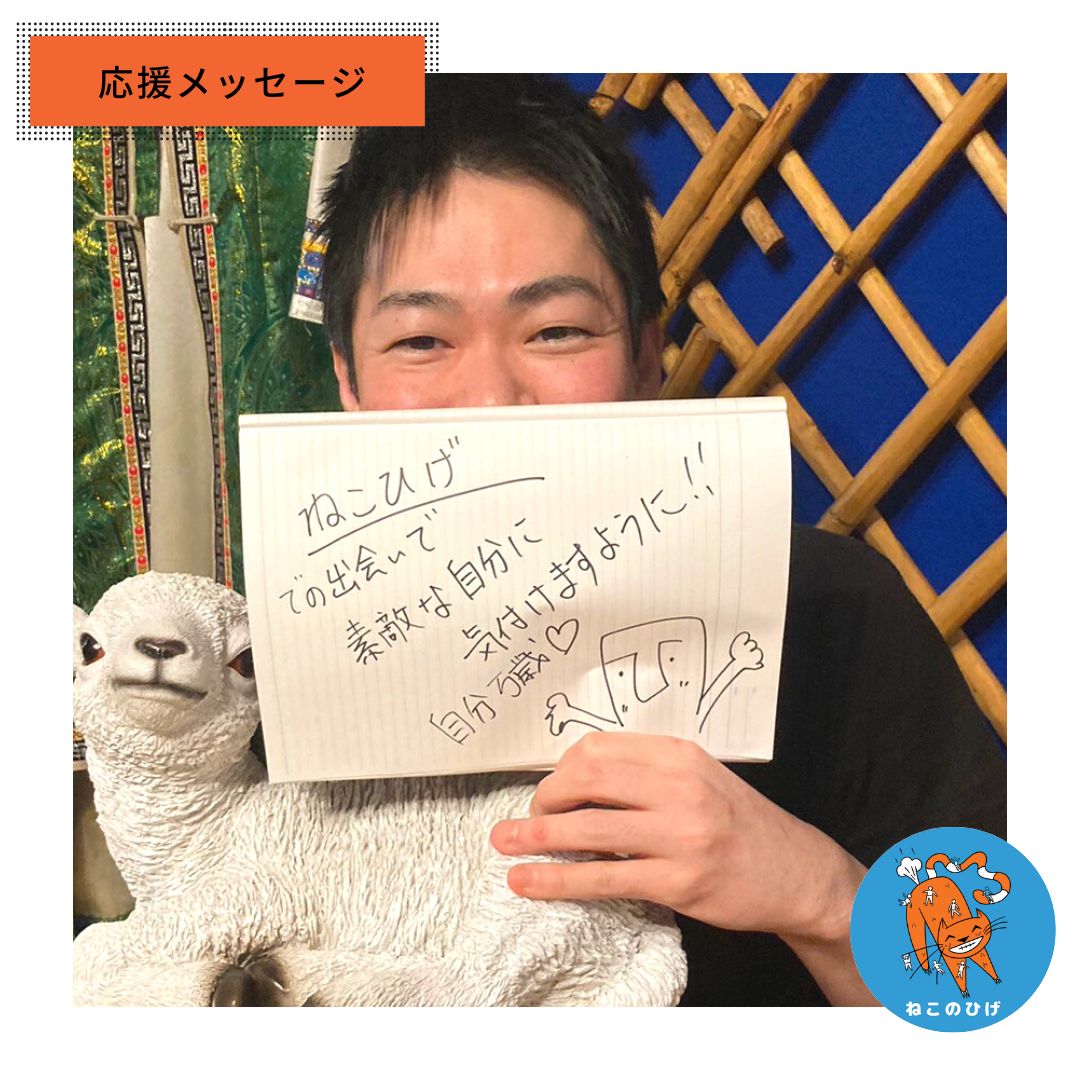 応援メッセージ
ねこひげ
での出会いで
素敵な自分に
気付けますように!!
自分万歳♡
ねこのひげ